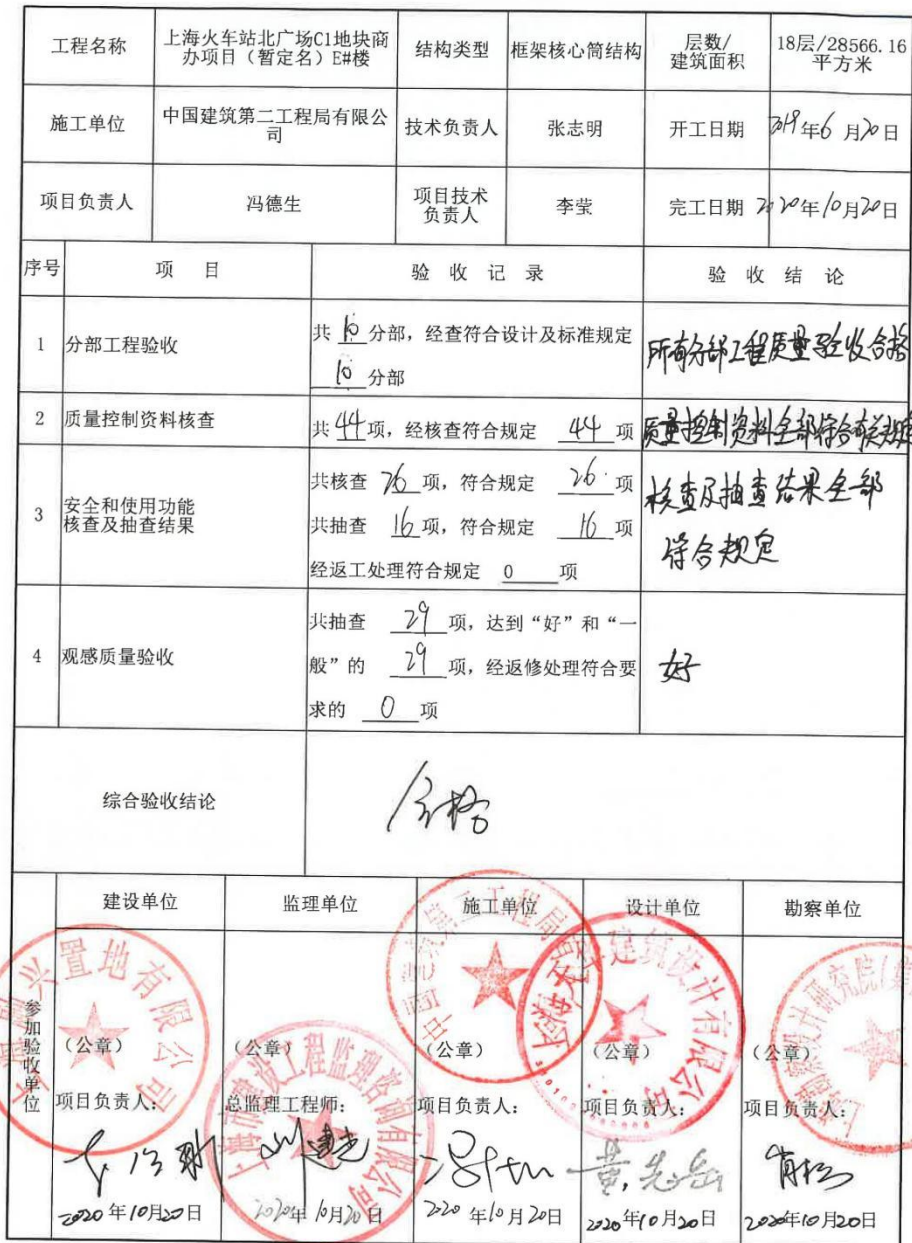 工程名称
上海火车站北广场C1地块商
办项目（暂定名）E#楼
结构类型
框架核心筒结构
层数/
建筑面积
18层/28566.16
平方米
施工单位
中国建筑第二工程局有限公
司
技术负责人
张志明
开工日期
2019年6月20日
项目负责人
冯德生
项目技术
负责人
李莹
完工日期
2020年10月20日
序号
项 目
验 收 记 录
验 收 结 论
1
分部工程验收
共 10 分部，经查符合设计及标准规定
10 分部
所有分部工程质量验收合格
2
质量控制资料核查
共 44 项，经核查符合规定 44 项
质量控制资料全部符合有关规定
3
安全和使用功能
核查及抽查结果
共核查 26 项，符合规定 26 项
共抽查 16 项，符合规定 16 项
经返工处理符合规定 0 项
核查及抽查结果全部
符合规定
4
观感质量验收
共抽查 29 项，达到“好”和“一
般”的 29 项，经返修处理符合要
求的 0 项
好
综合验收结论
合格
参加验收单位
建设单位
监理单位
施工单位
设计单位
勘察单位
兴置地有限公司
（公章）
项目负责人：
2020年10月20日
上海市建设工程监理咨询有限公司
（公章）
总监理工程师：
2020年10月20日
中国建筑第二工程局有
（公章）
项目负责人：
2020年10月20日
建筑设计有限公司
（公章）
项目负责人：
黄先岳
2020年10月20日
勘察设计研究院(集
（公章）
项目负责人：
肖松
2020年10月20日